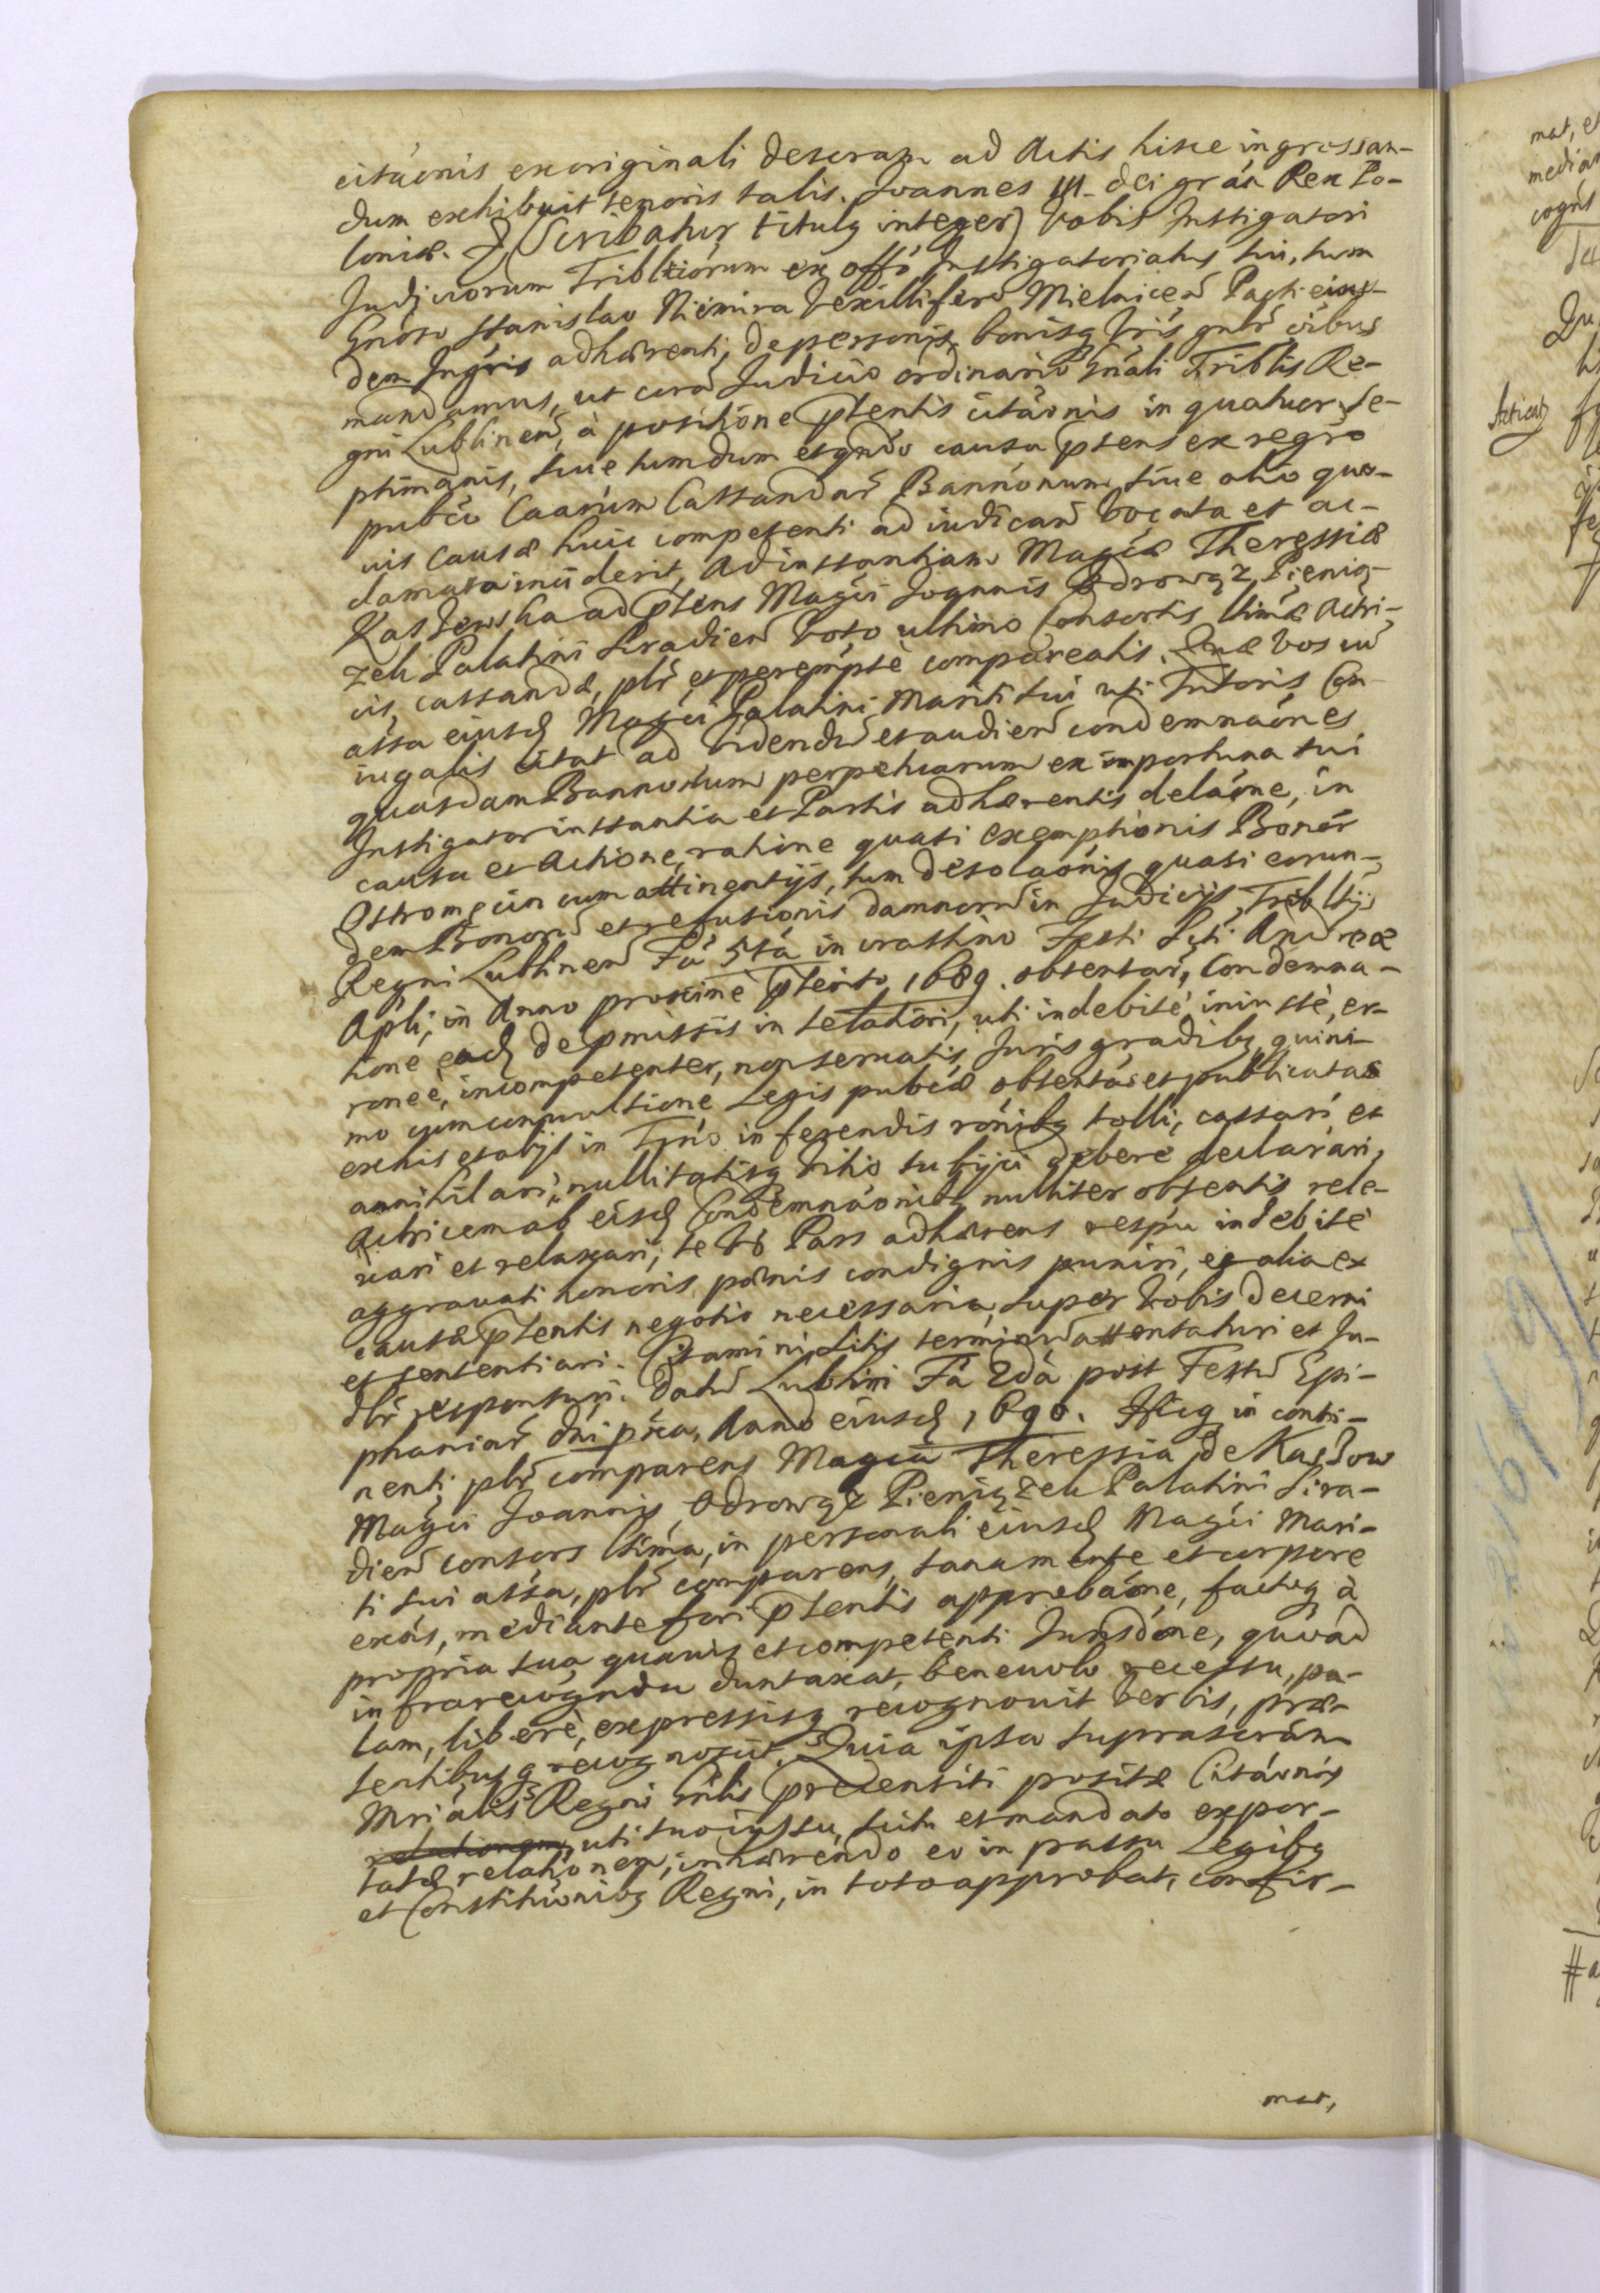 citáonis ex originali descratam ad Actis hisce ingrossan-
dum exhibuit tenoris talis. Joannes III. dei gráa Rex Po-
loniæ. (Scribatur tituly integer) Vobis Instigatori
Judiciorum Tribltiórum ex offó Instigatoriatus sui, tum
Gnóso Stanislao Niemira Vexillifero Mielnicen Parti eius-
dem Ingris adhærenti, de personis bonisq
mandamus, ut corá Judicio ordinario Gnáli Triblis Re-
gni Lublinen, à positióne ptentis citáonis in quatuor Se-
ptimánis, siue tum dum et qndo causa ptens ex regro
pubco Caarúm Cassandar Bannónum, siue alio quo-
uis causæ huic competenti ad iudican vocata et ac-
clamata inciderit, Ad instantiam Magcæ Theressiæ
Kasdewska ad ptens Magci Joannis Odrowąz Pieniąż-
zek Palatini Siradien voto ultimo Consortis ltimæ Actri-
cis, cassandæ, plr et perempte compareatis. Quæ vos in
assa eiusd Magci Palatini Mariti sui uti Tutoris Con-
iugalis citat ad videndu et audien condemnaónes
quasdam Bannonum perpetuarum ex importuna tui
Instigator instantia et Partis adhærentis delaóne, in
causa et Actione, ratióne quasi exemptionis Bonór
Ostromęcin cum attinentijs, tum desolaónis quasi eorun-
dem Bonoru et refusionis damnoru in Judicijs Tribltijs
Regni Lublinen Fá 5tá in crastino Festi Scti Andreæ
Apli, in Anno proxime pterito 1689. obtentar, Condemna-
tióne ead de pmissis in se latióri, uti indebité, iniuste, er-
roneè, incompetenter, non seruatis Juris gradiby, quini-
mo cum conuulsione Legis pubcæ obtentas et publicatas
exhis et alijs in Trno inferendis rónibq tolli, cassari et
annihilari, nullitatisq vitio subijci debere declarari,
Actricem ab eisd Condemnáonibq nulliter obtentis rele-
uari et relaxari, te Vo Pars adhærens respu indebité
aggrauati honoris pænis condignis puniri, et alia ex
causæ ptentis negotio necessaria super vobis decerni
et sententiari. Citamini, Litis terminu attentaturi et Ju-
dlr responsuri. Datu Lublini Fá 2dá post Festu Epi-
phaniar dni pxa, Anno eiusd 1690. Hicq in conti-
nenti plr comparens Magca Theressia de Kasdow
Magci Joannis Odrowąz Pieniązek Palatini Sira-
dien consors ltima, in personali eiusd Magci Mari-
ti sui assa, plr comparens, sana mente et corpore
exñs, mediante fori ptentis approbaóne, factaq à
propria sua quauis et competenti Jurisdóne, quoad
infrarecogndu duntaxat, beneuolo recessu, pa-
lam, liberè, expressisq recognouit verbis, præ-
sentibusq recognoscit. Quia ipsa suprascrám
Mriális Regni Gnlis præsentiti positæ Citáonis
relationem, uti suo iussu, scitu et mandato expor-
tatæ relationem, inhærendo eo in passu Legibq
et Constitúonibq Regni, in toto approbat, confir-
mat,